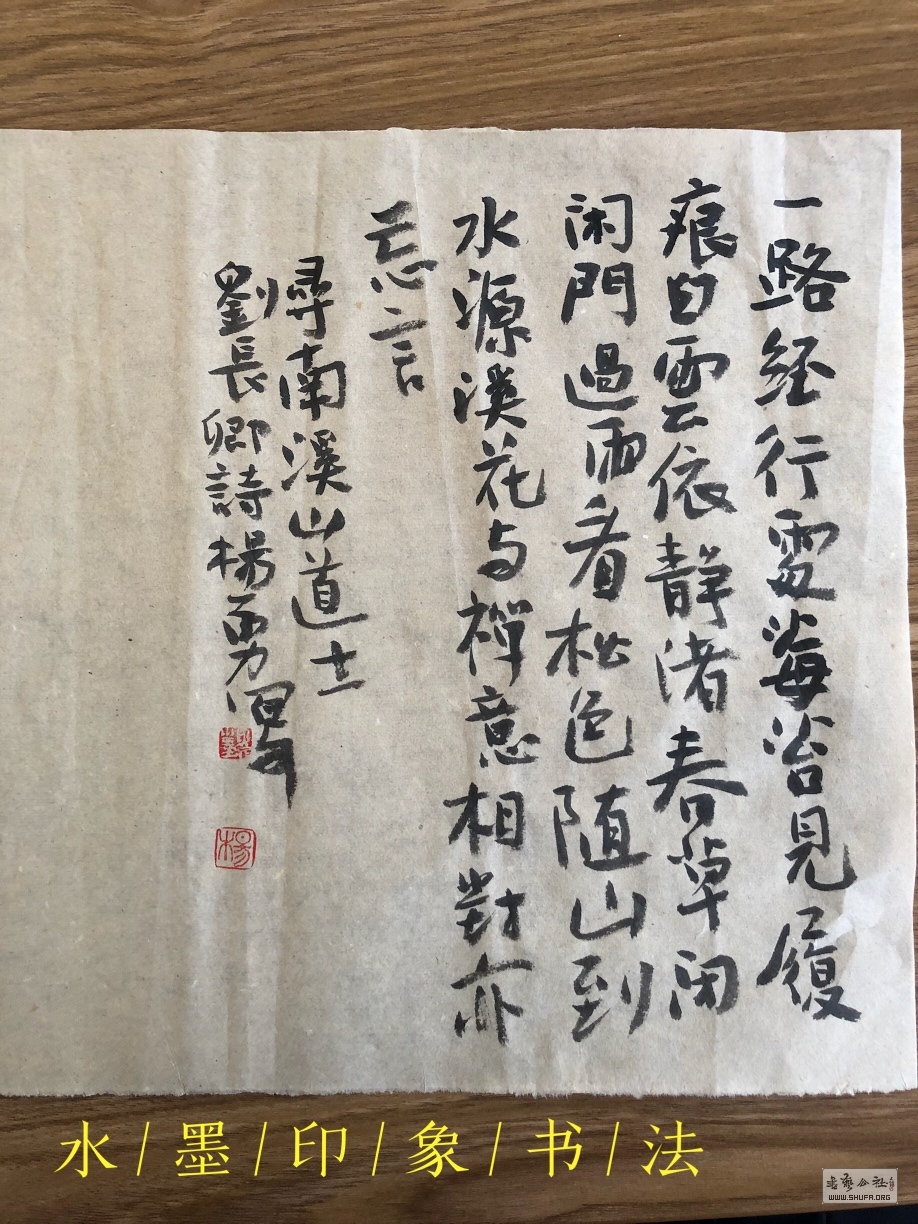 一路经行處海苔見履
痕白雲依静渚春草闭
闲門過雨看松色随山到
水源溪花与禪意相對亦
忘言
尋南溪山道士
劉長卿詩楊勇寫
楊
水/墨/印/象/书/法
书艺公社
WWW.SHUFA.ORG